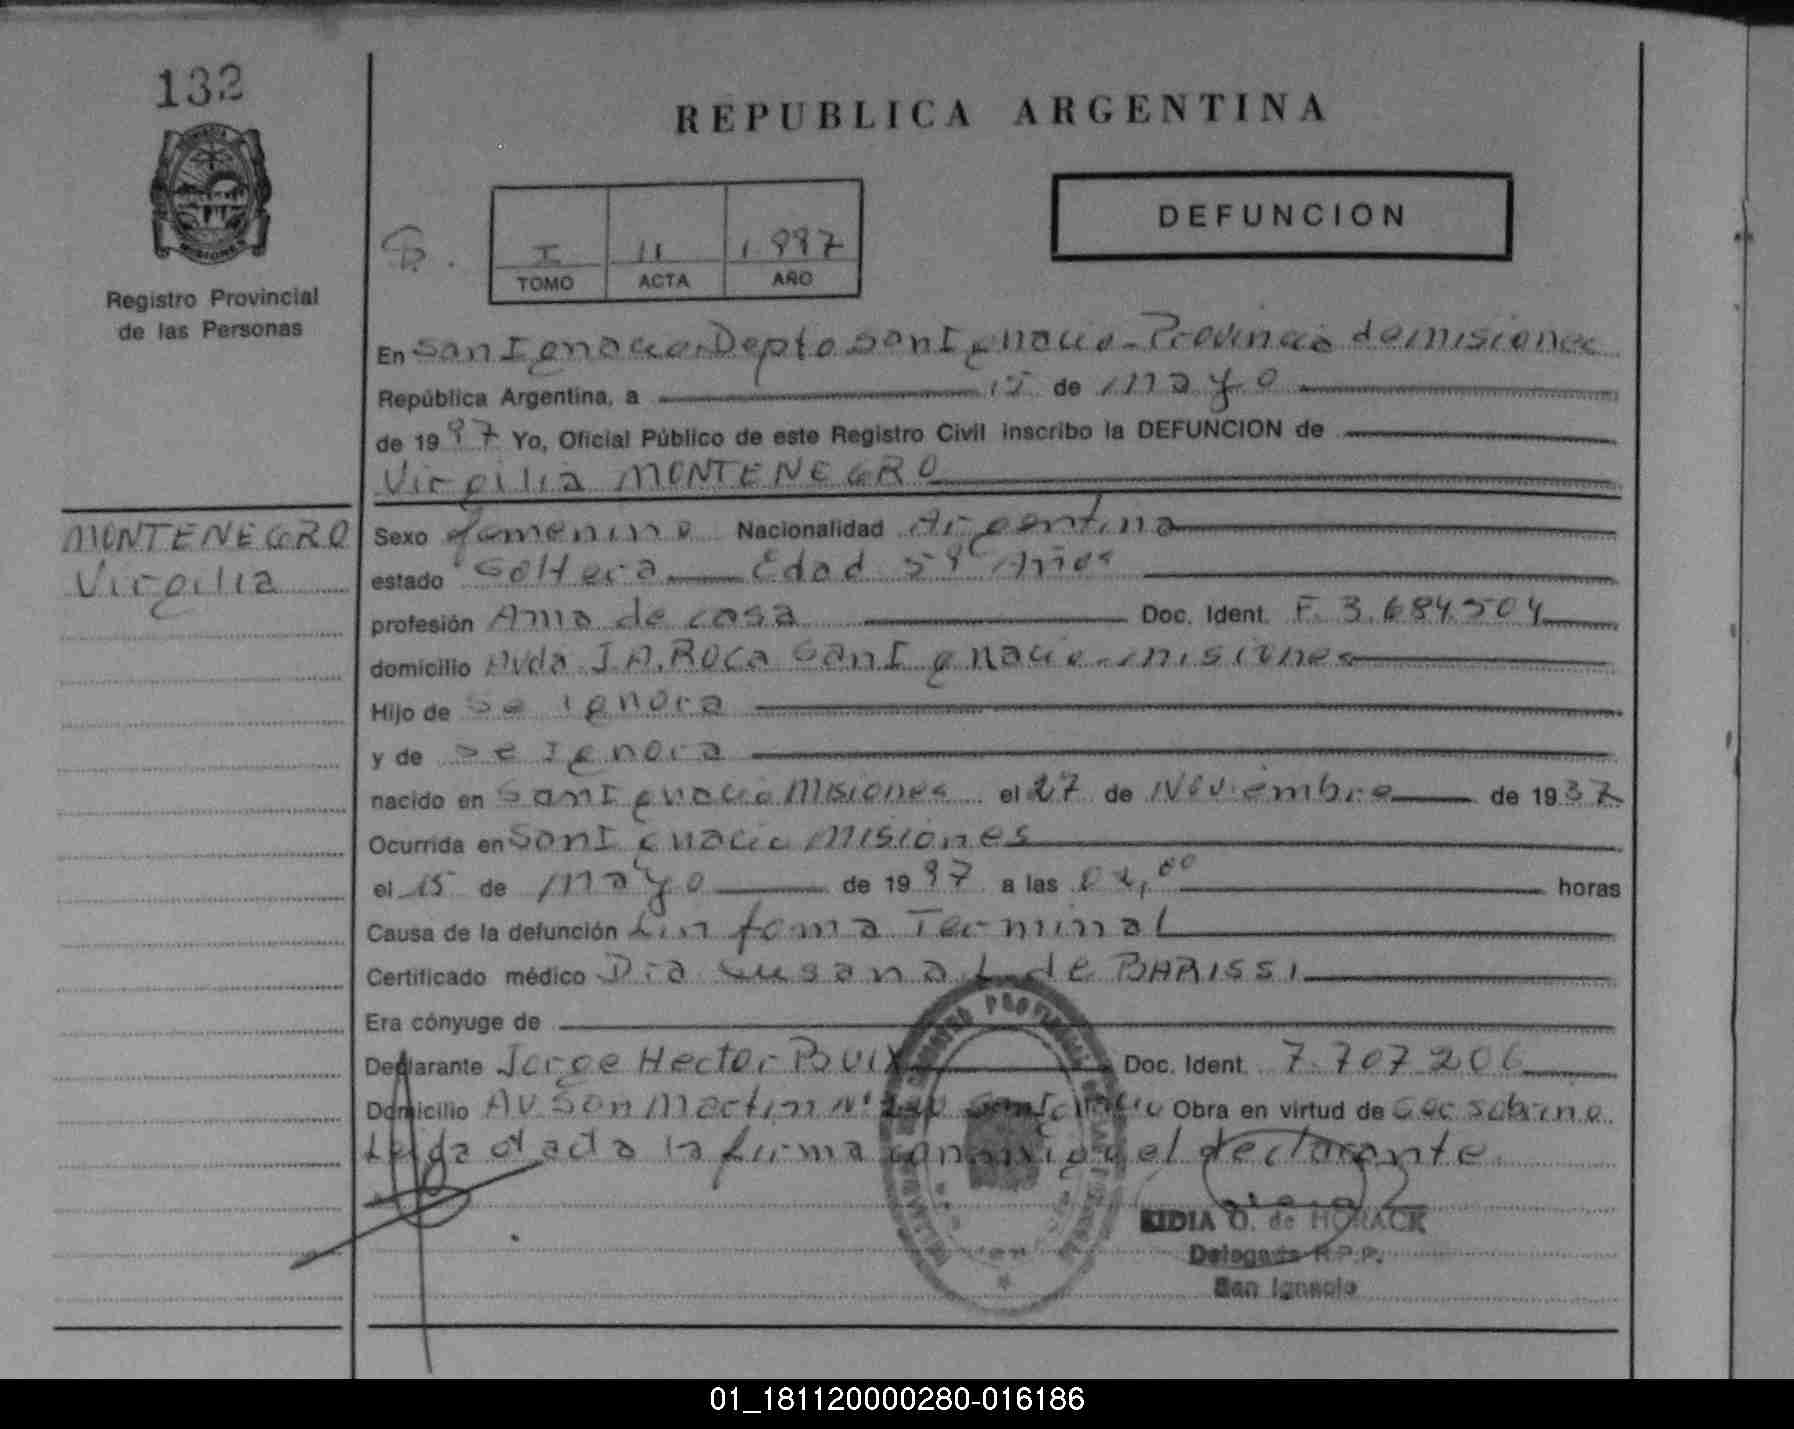 132
REPUBLICA ARGENTINA
PROVINCIA
MISIONES
DEFUNCION
I 11 1.997
TOMO ACTA AÑO
Registro Provincial
de las Personas
En San Ignacio Depto San Ignacio - Provincia de misiones
República Argentina, a 15 de mayo
de 1997 Yo, Oficial Público de este Registro Civil inscribo la DEFUNCION de
Virgilia MONTENEGRO
MONTENEGRO
Virgilia
Sexo femenino Nacionalidad Argentina
estado Soltera Edad 59 Años
profesión Ama de casa Doc. Ident. F. 3.684.504
domicilio Avda J.A. ROCA San Ignacio - misiones
Hijo de Se ignora
y de Se Ignora
nacido en San Ignacio Misiones el 27 de Noviembre de 1937
Ocurrida en San Ignacio misiones
el 15 de mayo de 1997 a las horas
Causa de la defunción Linfoma Terminal
Certificado médico Dra Susana L de BARISSI
Era cónyuge de
Declarante Jorge Hector BUIX Doc. Ident. 7.707.206
Domicilio AV San Martin N° San Ignacio Obra en virtud de ser sobrino
Leida el acta la firma conmigo el declarante.
LIDIA O. de HORACK
Delegada R.P.P.
San Ignacio
01_181120000280-016186